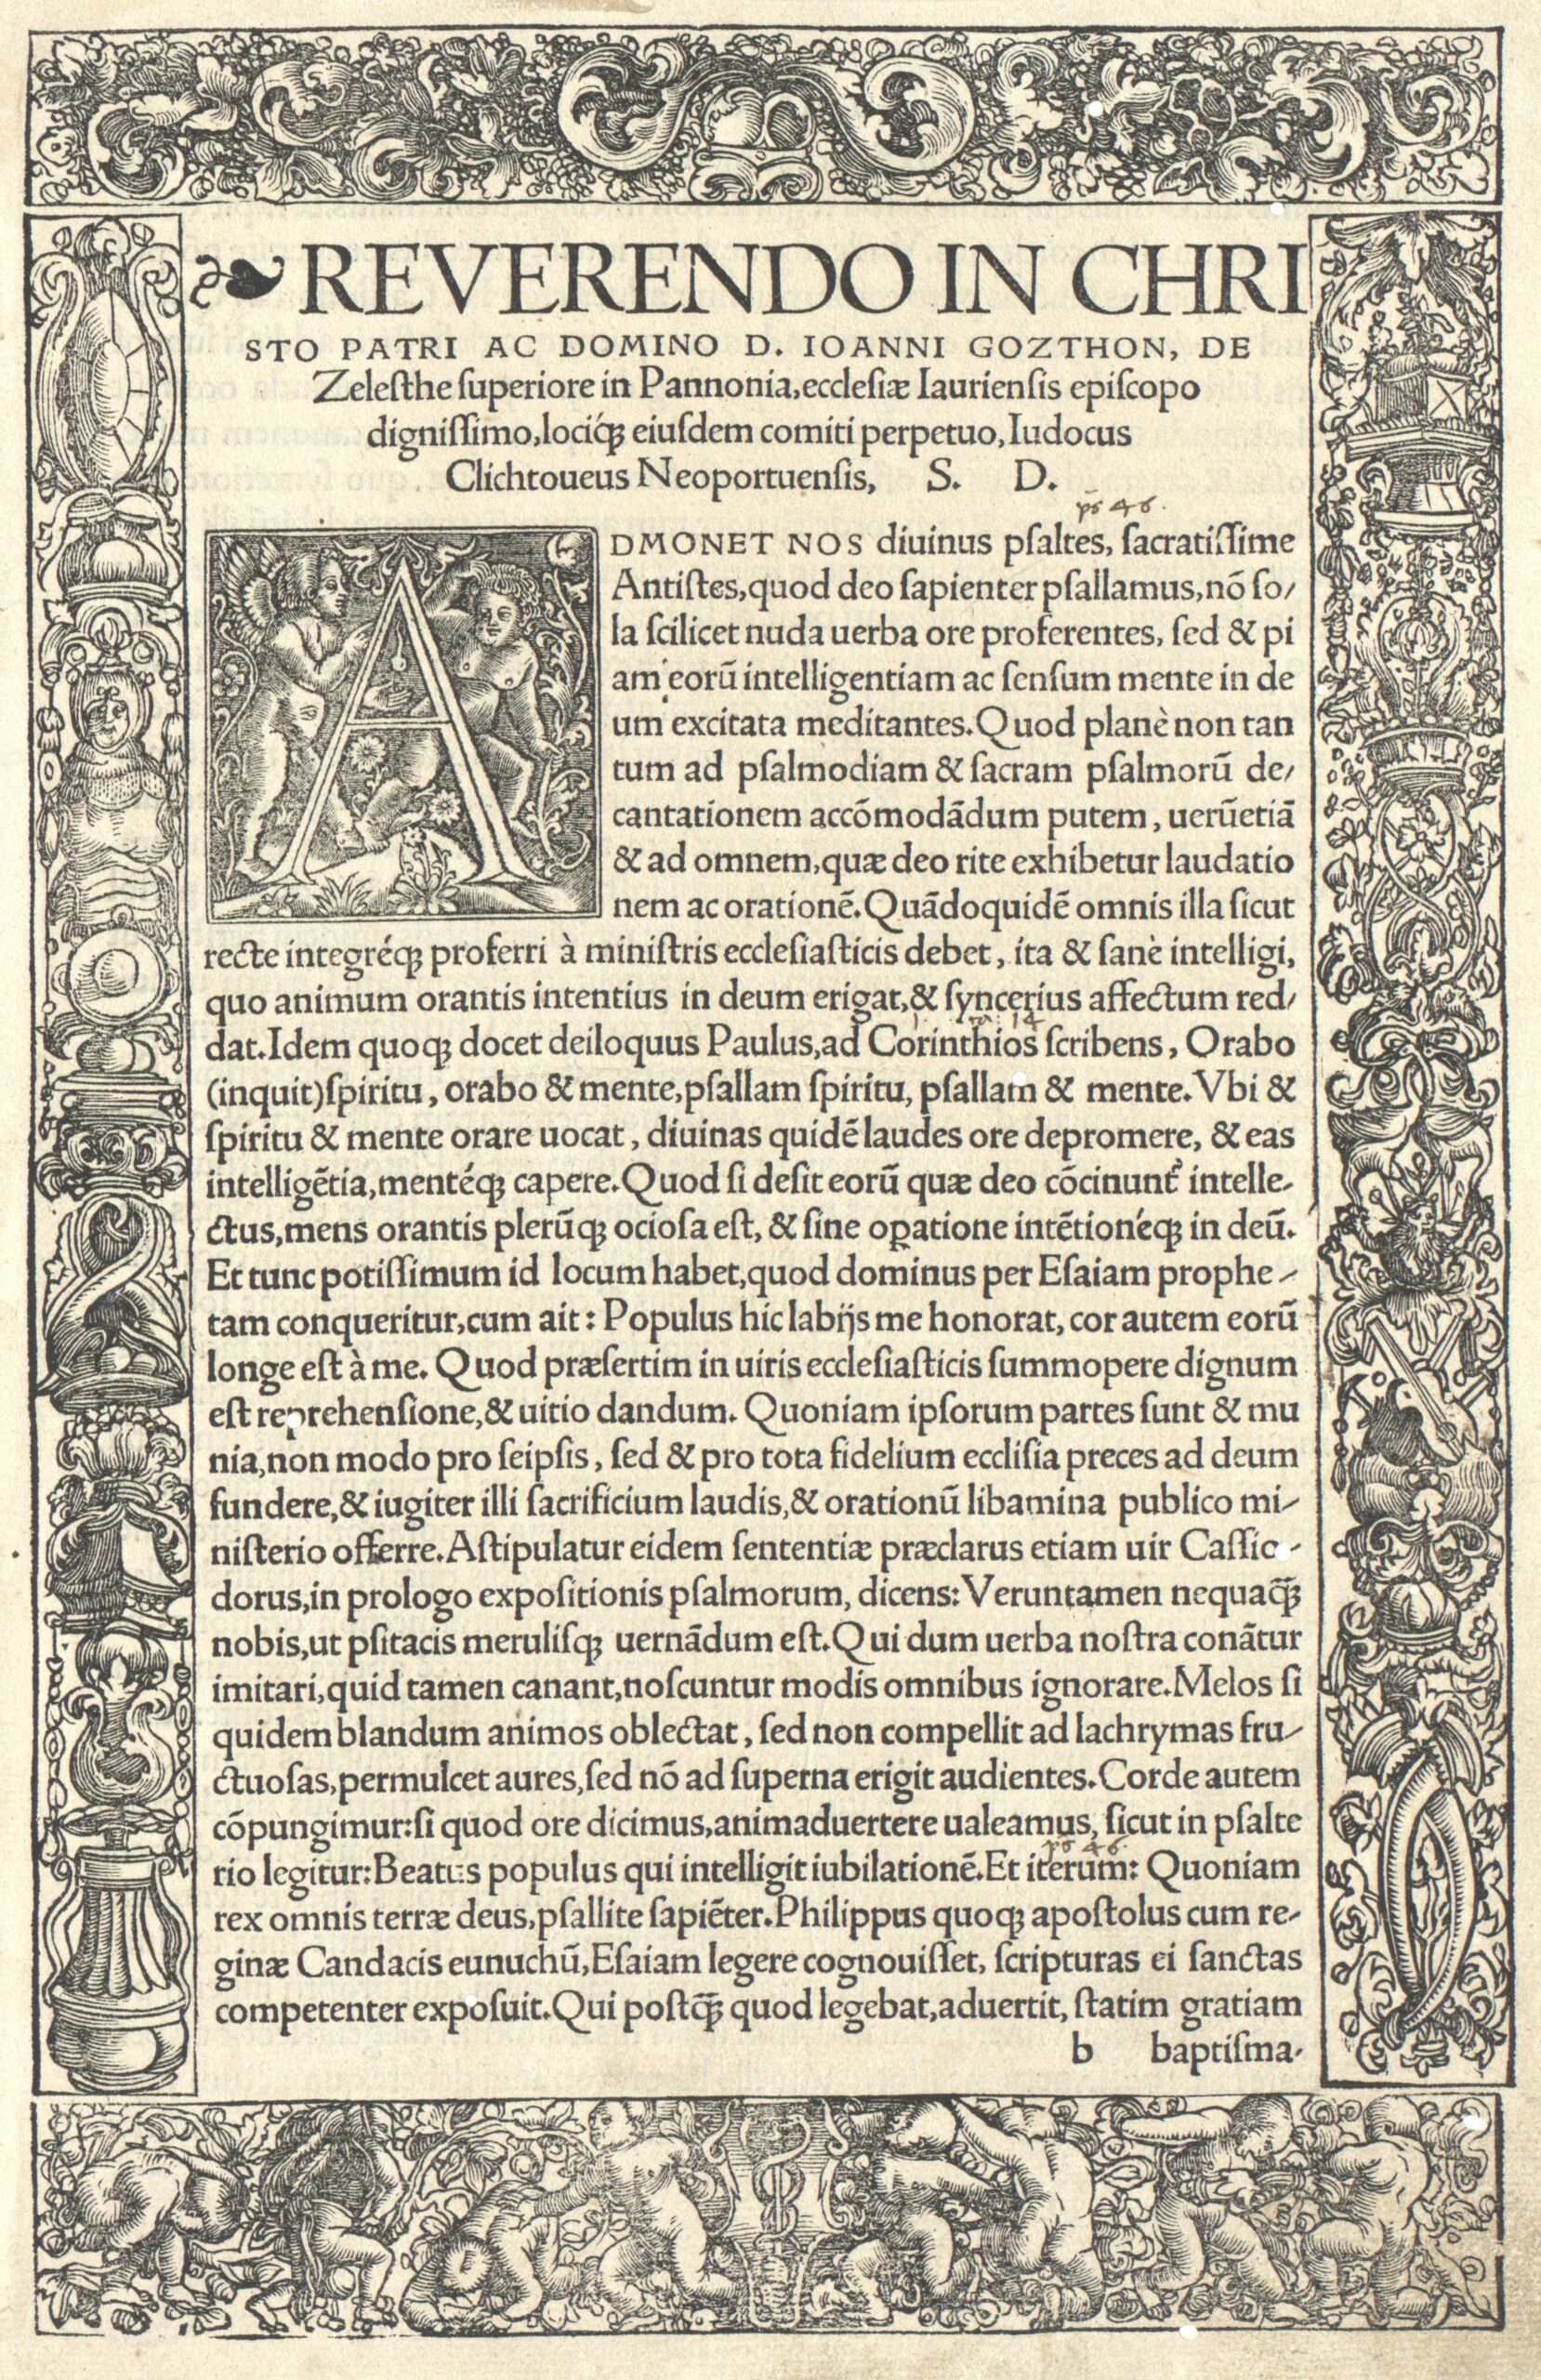 ❧ REVERENDO IN CHRI
STO PATRI AC DOMINO D. IOANNI GOZTHON, DE
Zelesthe superiore in Pannonia, ecclesiæ Iauriensis episcopo
dignissimo, lociq́ꝫ eiusdem comiti perpetuo, Iudocus
Clichtoueus Neoportuensis, S. D.
ps 46.
ADMONET NOS diuinus psaltes, sacratissime
Antistes, quod deo sapienter psallamus, nō so/
la scilicet nuda uerba ore proferentes, sed & pi
am eorū intelligentiam ac sensum mente in de
um excitata meditantes. Quod planè non tan
tum ad psalmodiam & sacram psalmorū de/
cantationem accōmodādum putem, uerūetiā
& ad omnem, quæ deo rite exhibetur laudatio
nem ac orationē. Quādoquidē omnis illa sicut
recte integréqꝫ proferri à ministris ecclesiasticis debet, ita & sanè intelligi,
quo animum orantis intentius in deum erigat, & syncerius affectum red/
14
dat. Idem quoqꝫ docet deiloquus Paulus, ad Corinthios scribens, Orabo
(inquit) spiritu, orabo & mente, psallam spiritu, psallam & mente. Vbi &
spiritu & mente orare uocat, diuinas quidē laudes ore depromere, & eas
intelligētia, mentéqꝫ capere. Quod si desit eorū quæ deo cōcinunt᷑ intelle-
ctus, mens orantis plerūqꝫ ociosa est, & sine oꝑatione intētionéqꝫ in deū.
Et tunc potissimum id locum habet, quod dominus per Esaiam prophe-
tam conqueritur, cum ait: Populus hic labijs me honorat, cor autem eorū
longe est à me. Quod præsertim in uiris ecclesiasticis summopere dignum
est reprehensione, & uitio dandum. Quoniam ipsorum partes sunt & mu
nia, non modo pro seipsis, sed & pro tota fidelium ecclisia preces ad deum
fundere, & iugiter illi sacrificium laudis, & orationū libamina publico mi-
nisterio offerre. Astipulatur eidem sententiæ præclarus etiam uir Cassio-
dorus, in prologo expositionis psalmorum, dicens: Veruntamen nequaq̄ꝫ
nobis, ut psitacis merulisqꝫ uernādum est. Qui dum uerba nostra conātur
imitari, quid tamen canant, noscuntur modis omnibus ignorare. Melos si
quidem blandum animos oblectat, sed non compellit ad lachrymas fru-
ctuosas, permulcet aures, sed nō ad superna erigit audientes. Corde autem
cōpungimur: si quod ore dicimus, animaduertere ualeamus, sicut in psalte
ps 46.
rio legitur: Beatus populus qui intelligit iubilationē. Et iterum: Quoniam
rex omnis terræ deus, psallite sapiēter. Philippus quoqꝫ apostolus cum re-
ginæ Candacis eunuchū, Esaiam legere cognouisset, scripturas ei sanctas
competenter exposuit. Qui postq̄ꝫ quod legebat, aduertit, statim gratiam
b baptisma-